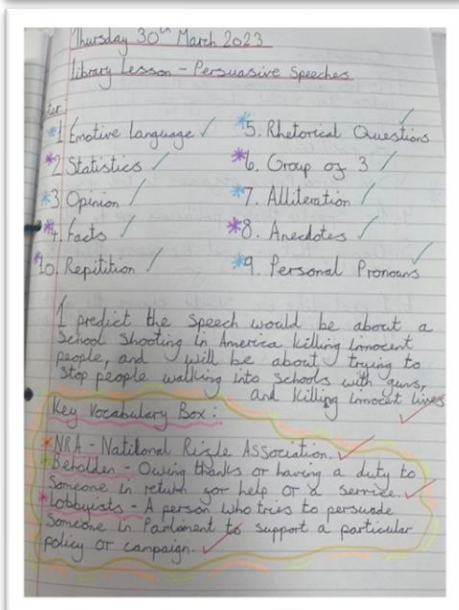 Thursday 30th March 2023
Library Lesson - Persuasive Speeches
*1 Emotive language
*2 Statistics
*3 Opinion
*4. Facts
*10. Repitition
*5. Rhetorical Questions
*6. Group of 3
*7. Alliteration
*8. Anecdotes
*9. Personal Pronouns
I predict the speech would be about a
School Shooting in America killing innocent
people, and will be about trying to
stop people walking into schools with guns,
and killing innocent lives
Key Vocabulary Box:
*NRA - National Rifle Association.
*Beholden - Owing thanks or having a duty to
Someone in return for help or a service.
*Lobbyists - A person who tries to persuade
Someone in Parliament to support a particular
policy or campaign.